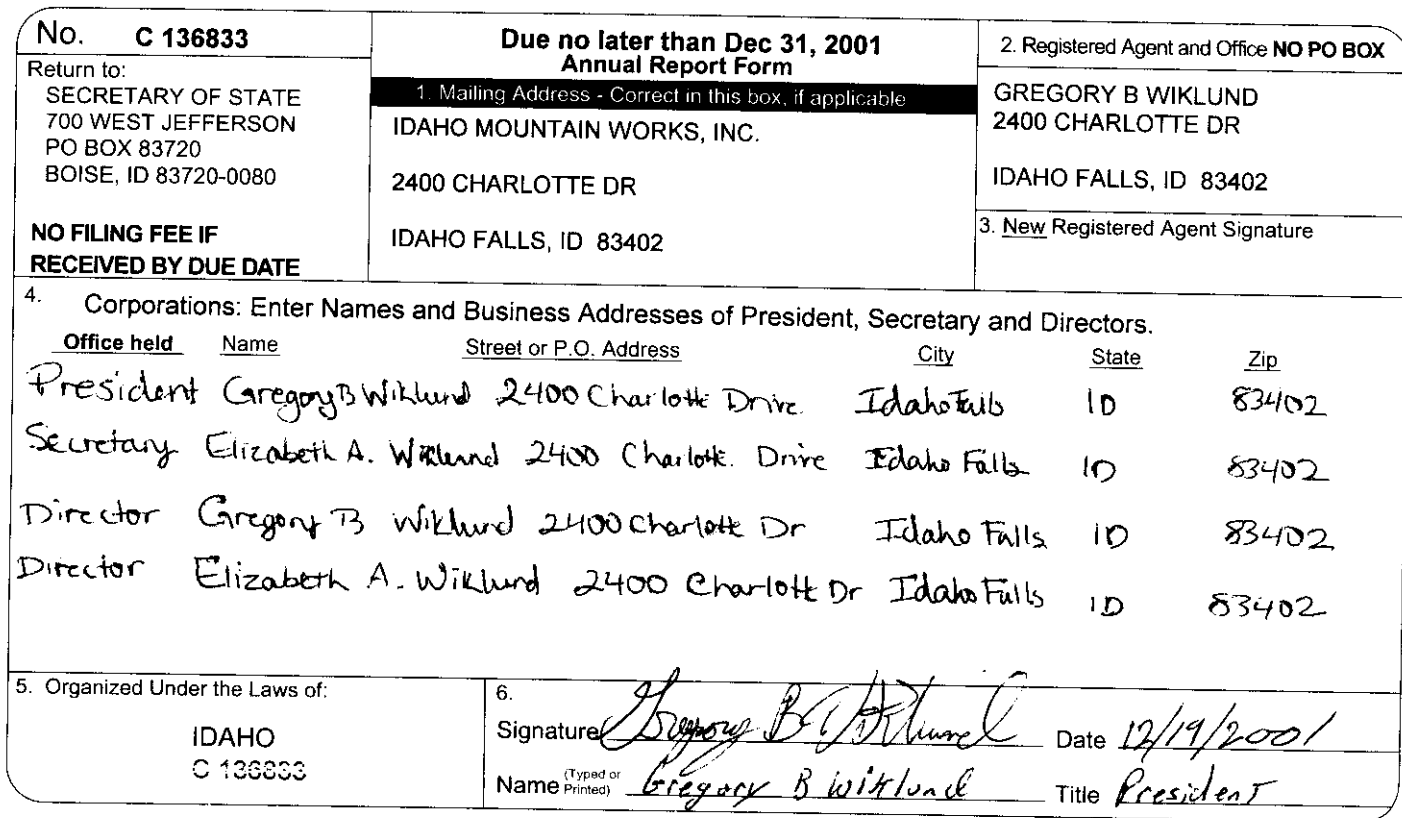 No. C 136833
Return to:
SECRETARY OF STATE
700 WEST JEFFERSON
PO BOX 83720
BOISE, ID 83720-0080
NO FILING FEE IF
RECEIVED BY DUE DATE
Due no later than Dec 31, 2001
Annual Report Form
1. Mailing Address - Correct in this box, if applicable
IDAHO MOUNTAIN WORKS, INC.
2400 CHARLOTTE DR
IDAHO FALLS, ID 83402
2. Registered Agent and Office NO PO BOX
GREGORY B WIKLUND
2400 CHARLOTTE DR
IDAHO FALLS, ID 83402
3. New Registered Agent Signature
4. Corporations: Enter Names and Business Addresses of President, Secretary and Directors.
Office held Name Street or P.O. Address City State Zip
President Gregory B Wiklund 2400 Charlotte Drive Idaho Falls ID 83402
Secretary Elizabeth A. Wiklund 2400 Charlotte Drive Idaho Falls ID 83402
Director Gregory B Wiklund 2400 Charlotte Dr Idaho Falls ID 83402
Director Elizabeth A. Wiklund 2400 Charlotte Dr Idaho Falls ID 83402
5. Organized Under the Laws of:
IDAHO
C 136833
6.
Signature Gregory B Wiklund Date 12/19/2001
Name (Typed or Printed) Gregory B Wiklund Title President